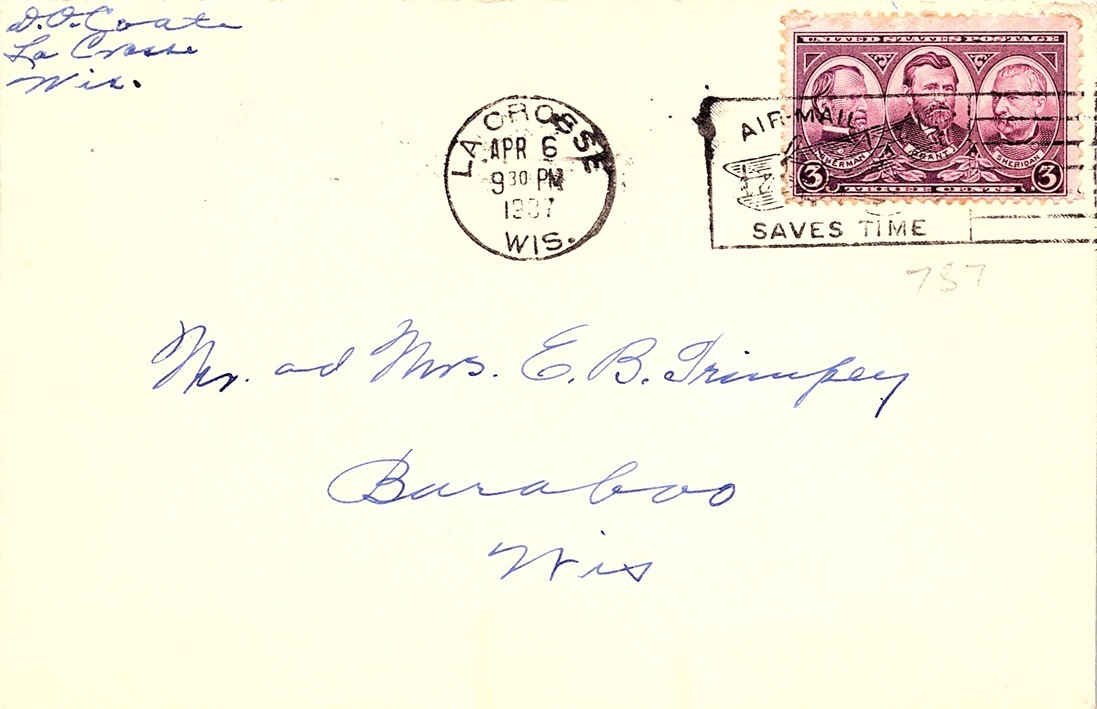 D.O. Coate
La Crosse
Wis.
UNITED STATES POSTAGE
SHERMAN GRANT SHERIDAN
3 THREE CENTS 3
LA CROSSE
APR 6
9 30 PM
1937
WIS.
AIR-MAIL
SAVES TIME
787
Mr. ad Mrs. E. B. Trimpey
Baraboo
Wis